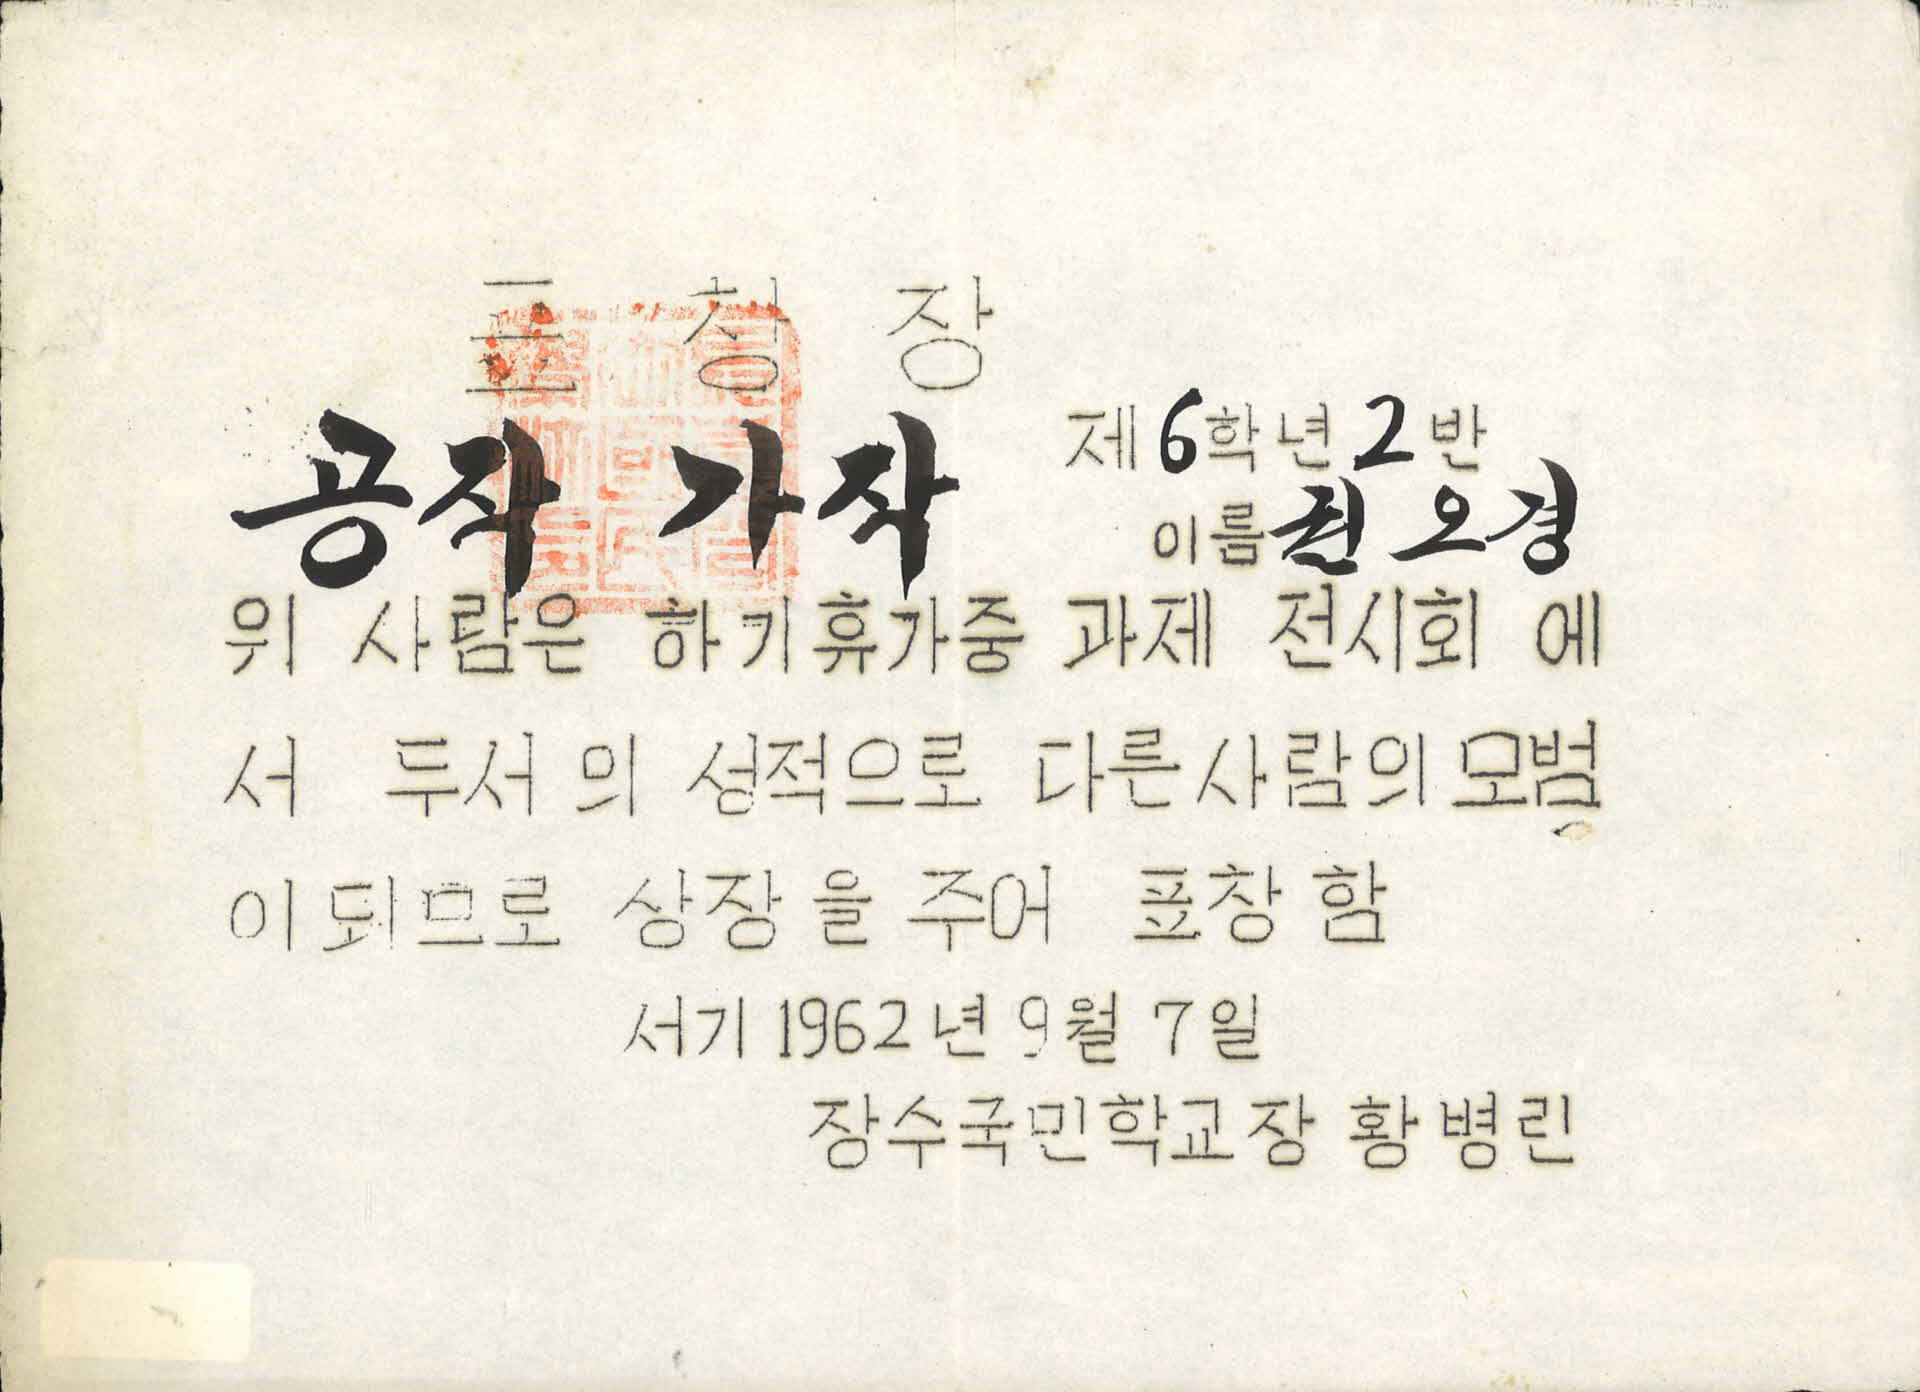 표창장
공작 가작
제6학년2반
이름 권오경
위 사람은 하기휴가중 과제 전시회 에
서 두서의 성적으로 다른사람의 모범
이되므로 상장을 주어 표창함
서기 1962년 9월 7일
장수국민학교장 황병린